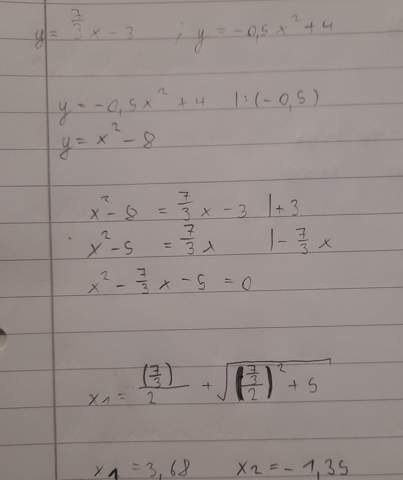 y = 7/3 x - 3 ; y = -0,5x² + 4
y = -0,5x² + 4 | : (-0,5)
y = x² - 8
x² - 8 = 7/3 x - 3 | + 3
x² - 5 = 7/3 x | - 7/3 x
x² - 7/3 x - 5 = 0
x1 = (7/3)/2 + √((7/3)/2)² + 5
x1 = 3,68 x2 = -1,35